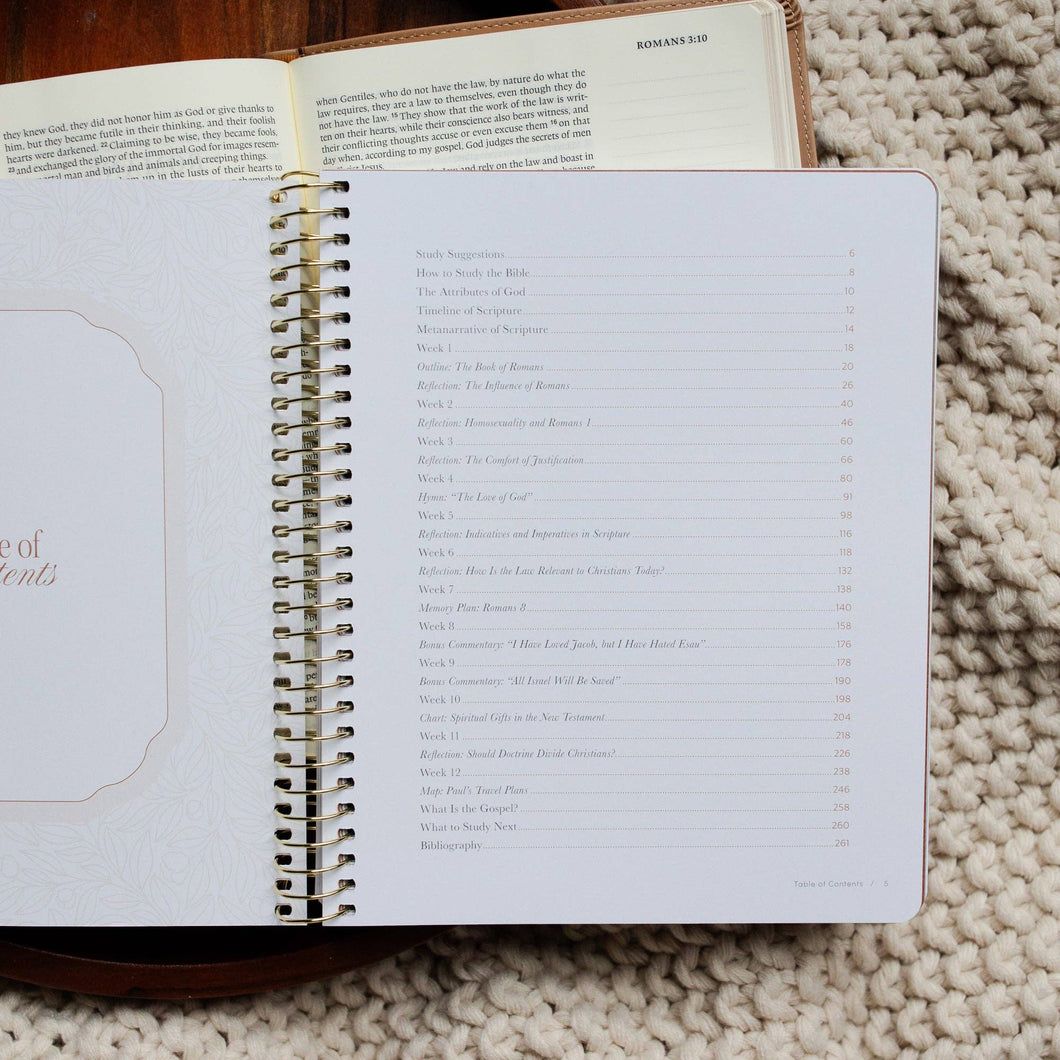 ROMANS 3:10
they knew God, they did not honor him as God or give thanks to
him, but they became futile in their thinking, and their foolish
hearts were darkened. 22 Claiming to be wise, they became fools,
23 and exchanged the glory of the immortal God for images resem-
mortal man and birds and animals and creeping things.
up in the lusts of their hearts to
themselves
when Gentiles, who do not have the law, by nature do what the
law requires, they are a law to themselves, even though they do
not have the law. 15 They show that the work of the law is writ-
ten on their hearts, while their conscience also bears witness, and
their conflicting thoughts accuse or even excuse them 16 on that
day when, according to my gospel, God judges the secrets of men
Christ Jesus.
and rely on the law and boast in
e of
tents
Study Suggestions 6
How to Study the Bible 8
The Attributes of God 10
Timeline of Scripture 12
Metanarrative of Scripture 14
Week 1 18
Outline: The Book of Romans 20
Reflection: The Influence of Romans 26
Week 2 40
Reflection: Homosexuality and Romans 1 46
Week 3 60
Reflection: The Comfort of Justification 66
Week 4 80
Hymn: “The Love of God” 91
Week 5 98
Reflection: Indicatives and Imperatives in Scripture 116
Week 6 118
Reflection: How Is the Law Relevant to Christians Today? 132
Week 7 138
Memory Plan: Romans 8 140
Week 8 158
Bonus Commentary: “I Have Loved Jacob, but I Have Hated Esau” 176
Week 9 178
Bonus Commentary: “All Israel Will Be Saved” 190
Week 10 198
Chart: Spiritual Gifts in the New Testament 204
Week 11 218
Reflection: Should Doctrine Divide Christians? 226
Week 12 238
Map: Paul’s Travel Plans 246
What Is the Gospel? 258
What to Study Next 260
Bibliography 261
Table of Contents / 5